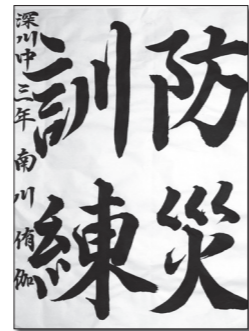 防災
訓練
深川中三年 南川侑伽